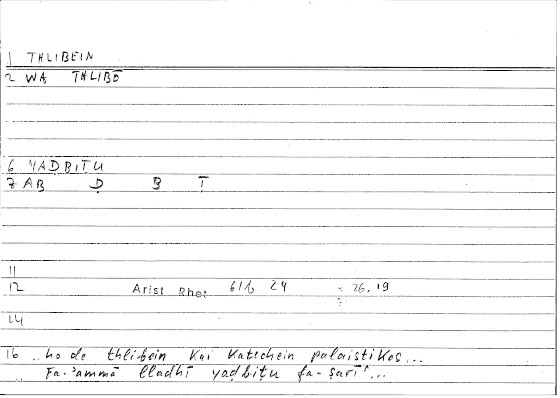 1 THLIBEIN
2 WA THLIBŌ
6 YAḌBIṬU
7 AB Ḍ B Ṭ
11
12 Arist Rhet 61b 24 = 26.19
14
16 ..ho de thlibein kai katechein palaistikos...
fa-'ammā lladhī yaḍbiṭu fa-ṣarī‘...